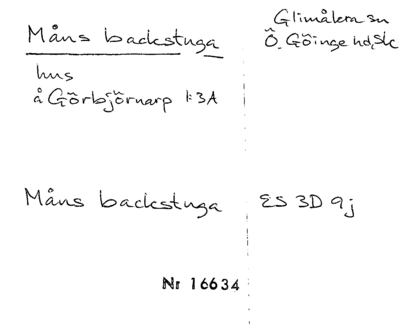 Måns backstuga
Glimåkra sn
Ö. Göinge hd, Sk
hus
å Görbjörnarp 1:3A
Måns backstuga
ES 3D 9j
Nr 16634